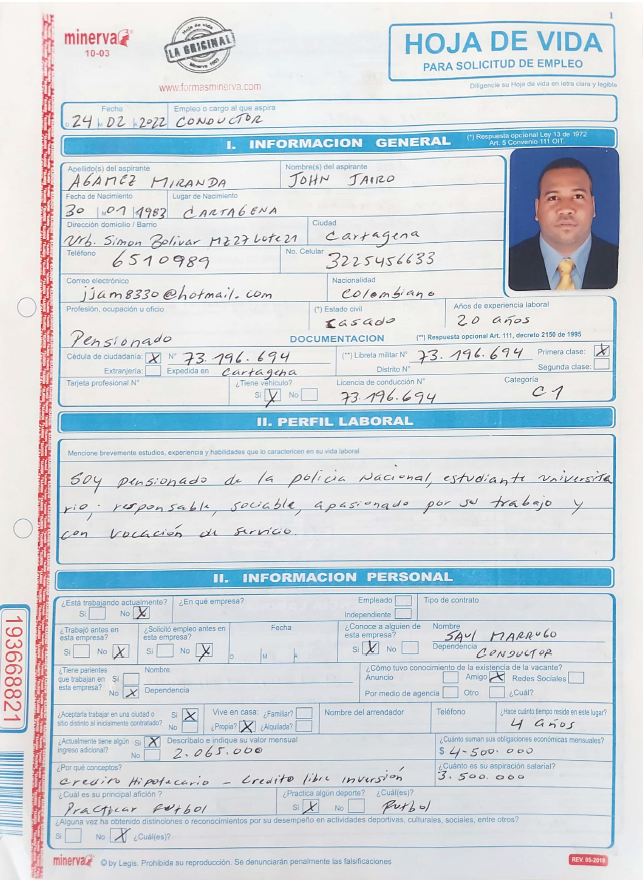 1
minerva
10-03
Hoja de vida
LA ORIGINAL
Minerva
www.formasminerva.com
HOJA DE VIDA
PARA SOLICITUD DE EMPLEO
Diligencie su Hoja de vida en letra clara y legible
Fecha Empleo o cargo al que aspira
24 02 2022 CONDUCTOR
I. INFORMACION GENERAL (*) Respuesta opcional Ley 13 de 1972
Art. 5 Convenio 111 OIT.
Apellido(s) del aspirante Nombre(s) del aspirante
AGAMEZ MIRANDA JOHN JAIRO
Fecha de Nacimiento Lugar de Nacimiento
30 01 1983 CARTAGENA
Dirección domicilio / Barrio Ciudad
Urb. Simon Bolivar Mz 27 Lote 21 Cartagena
Teléfono No. Celular
6510989 3225456633
Correo electrónico Nacionalidad
jjam8330@hotmail.com Colombiano
Profesión, ocupación u oficio (*) Estado civil Años de experiencia laboral
Pensionado casado 20 años
DOCUMENTACION (**) Respuesta opcional Art. 111, decreto 2150 de 1995
Cédula de ciudadanía: X N° 73.196.694 (**) Libreta militar N° 73.196.694 Primera clase: X
Extranjería: Expedida en Cartagena Distrito N° Segunda clase:
Tarjeta profesional N° ¿Tiene vehículo? Licencia de conducción N° Categoría
Si X No 73.196.694 C1
II. PERFIL LABORAL
Mencione brevemente estudios, experiencia y habilidades que lo caractericen en su vida laboral
Soy pensionado de la policia Nacional, estudiante universita
rio; responsable, sociable, apasionado por su trabajo y
con vocación de servicio.
II. INFORMACION PERSONAL
¿Está trabajando actualmente? ¿En qué empresa? Empleado Tipo de contrato
Si No X Independiente
¿Trabajó antes en esta empresa? ¿Solicitó empleo antes en esta empresa? Fecha ¿Conoce a alguien de esta empresa? Nombre
SAUL MARRUGO
Si No X Si No X D M A Si X No Dependencia
CONDUCTOR
¿Tiene parientes que trabajan en esta empresa? Si No X Nombre
Dependencia
¿Cómo tuvo conocimiento de la existencia de la vacante?
Anuncio Amigo X Redes Sociales
Por medio de agencia Otro ¿Cuál?
¿Aceptaría trabajar en una ciudad o sitio distinto al inicialmente contratado? Si X No
Vive en casa: ¿Familiar? ¿Propia? X ¿Alquilada?
Nombre del arrendador Teléfono ¿Hace cuánto tiempo reside en este lugar?
4 años
¿Actualmente tiene algún ingreso adicional? Si X No Descríbalo e indique su valor mensual
2.065.000
¿Cuánto suman sus obligaciones económicas mensuales?
$ 4.500.000
¿Por qué conceptos? ¿Cuánto es su aspiración salarial?
credito Hipotecario - Credito libre inversión 3.500.000
¿Cuál es su principal afición? ¿Practica algún deporte? ¿Cuál(es)?
Practicar Futbol Si X No Futbol
¿Alguna vez ha obtenido distinciones o reconocimientos por su desempeño en actividades deportivas, culturales, sociales, entre otros?
Si No X ¿Cuál(es)?
193668821
minerva © by Legis. Prohibida su reproducción. Se denunciarán penalmente las falsificaciones
REV. 05-2018